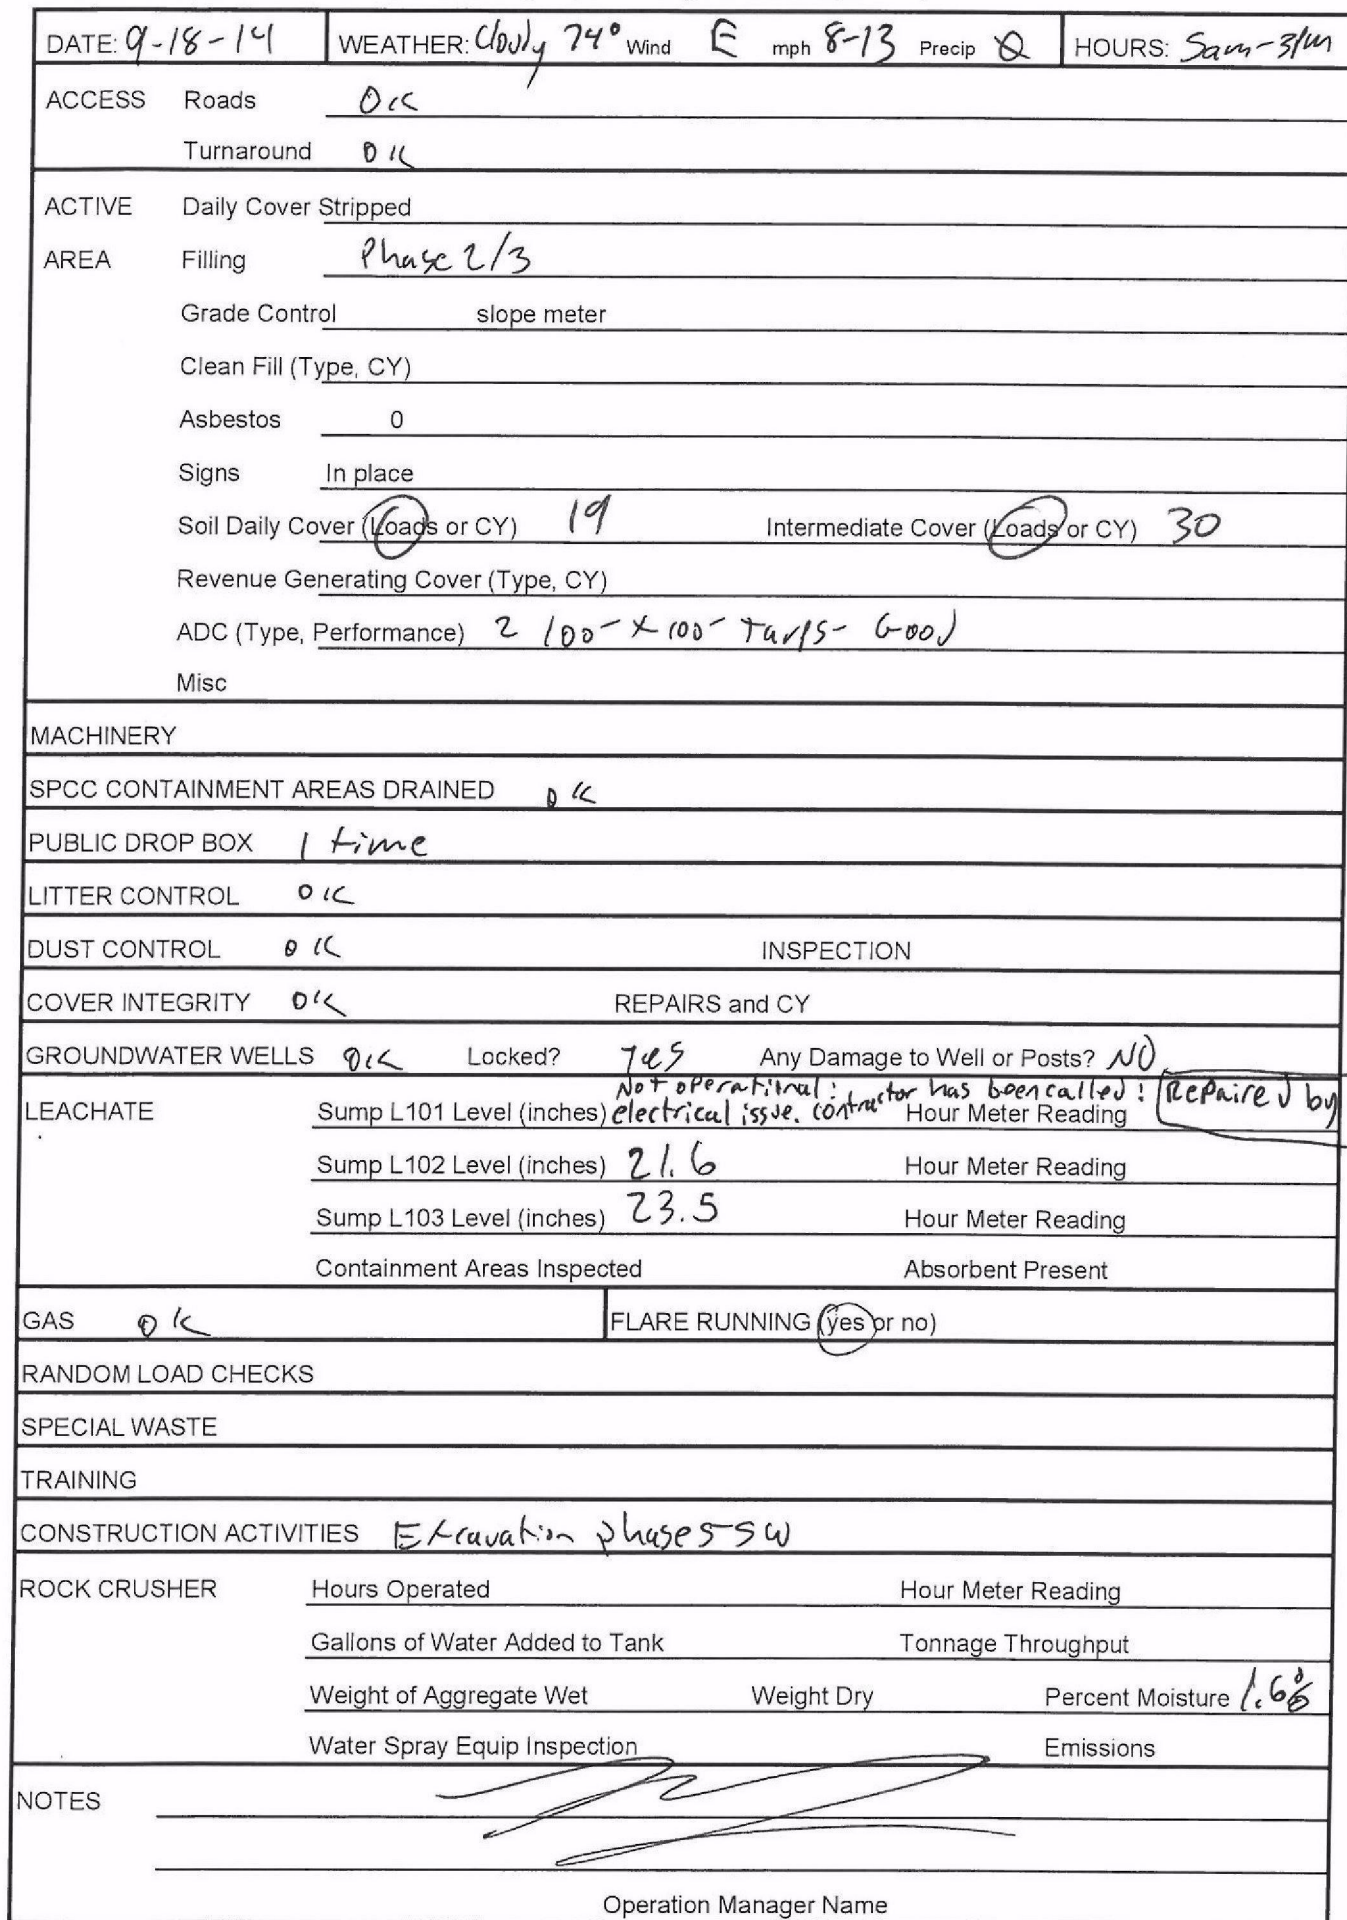 DATE: 9-18-14 WEATHER: Cloudy 74° Wind E mph 8-13 Precip 0 HOURS: 5am-3pm
ACCESS Roads OK
Turnaround OK
ACTIVE Daily Cover Stripped
AREA Filling Phase 2/3
Grade Control slope meter
Clean Fill (Type, CY)
Asbestos 0
Signs In place
Soil Daily Cover (Loads or CY) 19 Intermediate Cover (Loads or CY) 30
Revenue Generating Cover (Type, CY)
ADC (Type, Performance) 2 100- x 100- Tarps- Good
Misc
MACHINERY
SPCC CONTAINMENT AREAS DRAINED OK
PUBLIC DROP BOX 1 time
LITTER CONTROL OK
DUST CONTROL OK INSPECTION
COVER INTEGRITY OK REPAIRS and CY
GROUNDWATER WELLS OK Locked? Yes Any Damage to Well or Posts? NO
Not operational: contractor has been called! Repaired by
LEACHATE Sump L101 Level (inches) electrical issue. Hour Meter Reading
Sump L102 Level (inches) 21.6 Hour Meter Reading
Sump L103 Level (inches) 23.5 Hour Meter Reading
Containment Areas Inspected Absorbent Present
GAS OK FLARE RUNNING (yes or no)
RANDOM LOAD CHECKS
SPECIAL WASTE
TRAINING
CONSTRUCTION ACTIVITIES Excavation phase 5 SW
ROCK CRUSHER Hours Operated Hour Meter Reading
Gallons of Water Added to Tank Tonnage Throughput
Weight of Aggregate Wet Weight Dry Percent Moisture 1.6%
Water Spray Equip Inspection Emissions
NOTES
Operation Manager Name